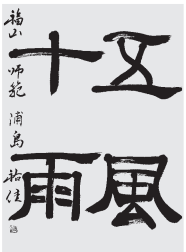 五風
十雨
福山 师範 浦島 裕佳